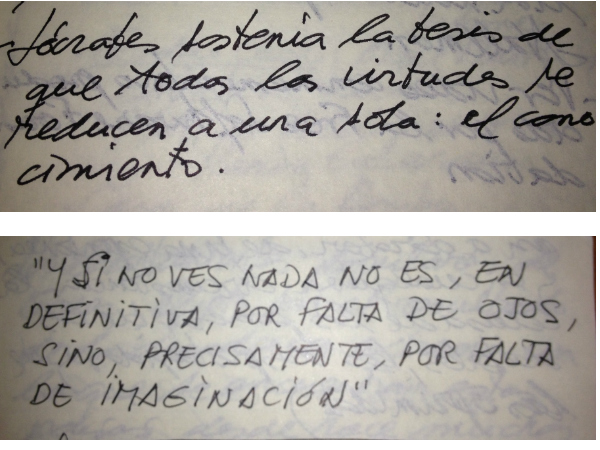 Sócrates sostenía la tesis de
que todas las virtudes se
reducen a una sola: el cono
cimiento.
"Y SI NO VES NADA NO ES, EN
DEFINITIVA, POR FALTA DE OJOS,
SINO, PRECISAMENTE, POR FALTA
DE IMAGINACIÓN"